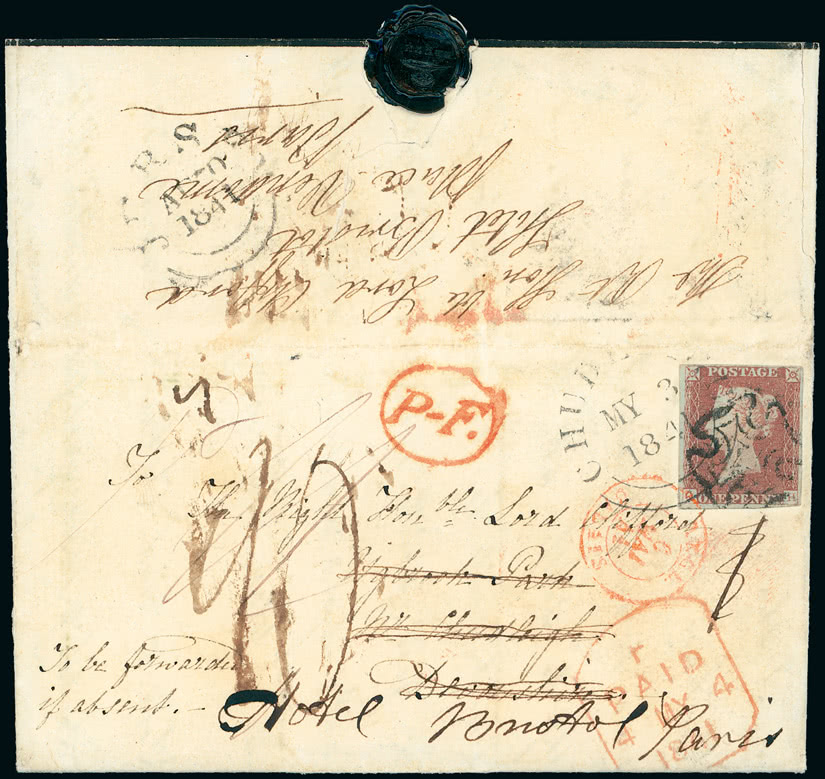 J E R S
AP 30
1841
The Rt Hon ble Lord Clifford
Hotel Bristol
Place Vendome
Paris
P-F.
CHUD
MY 3
1841
POSTAGE
ONE PENNY
To
The Right Honble Lord Clifford
Ugbrook Park
Nr Chudleigh
Devonshire
To be forwarded
if absent. -
Hotel Bristol Paris
F
PAID
4 MY 4
1841